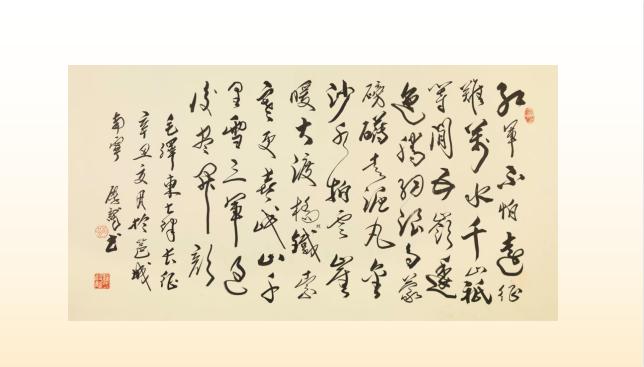 紅軍不怕遠征
難萬水千山祗
等閒五嶺逶
迤騰細浪烏蒙
磅礴走泥丸金
沙水拍雲崖
暖大渡橋鐵索
寒更喜岷山千
里雪三軍過
後盡開顏
毛澤東七律長征
辛丑月於邕城
南寧書